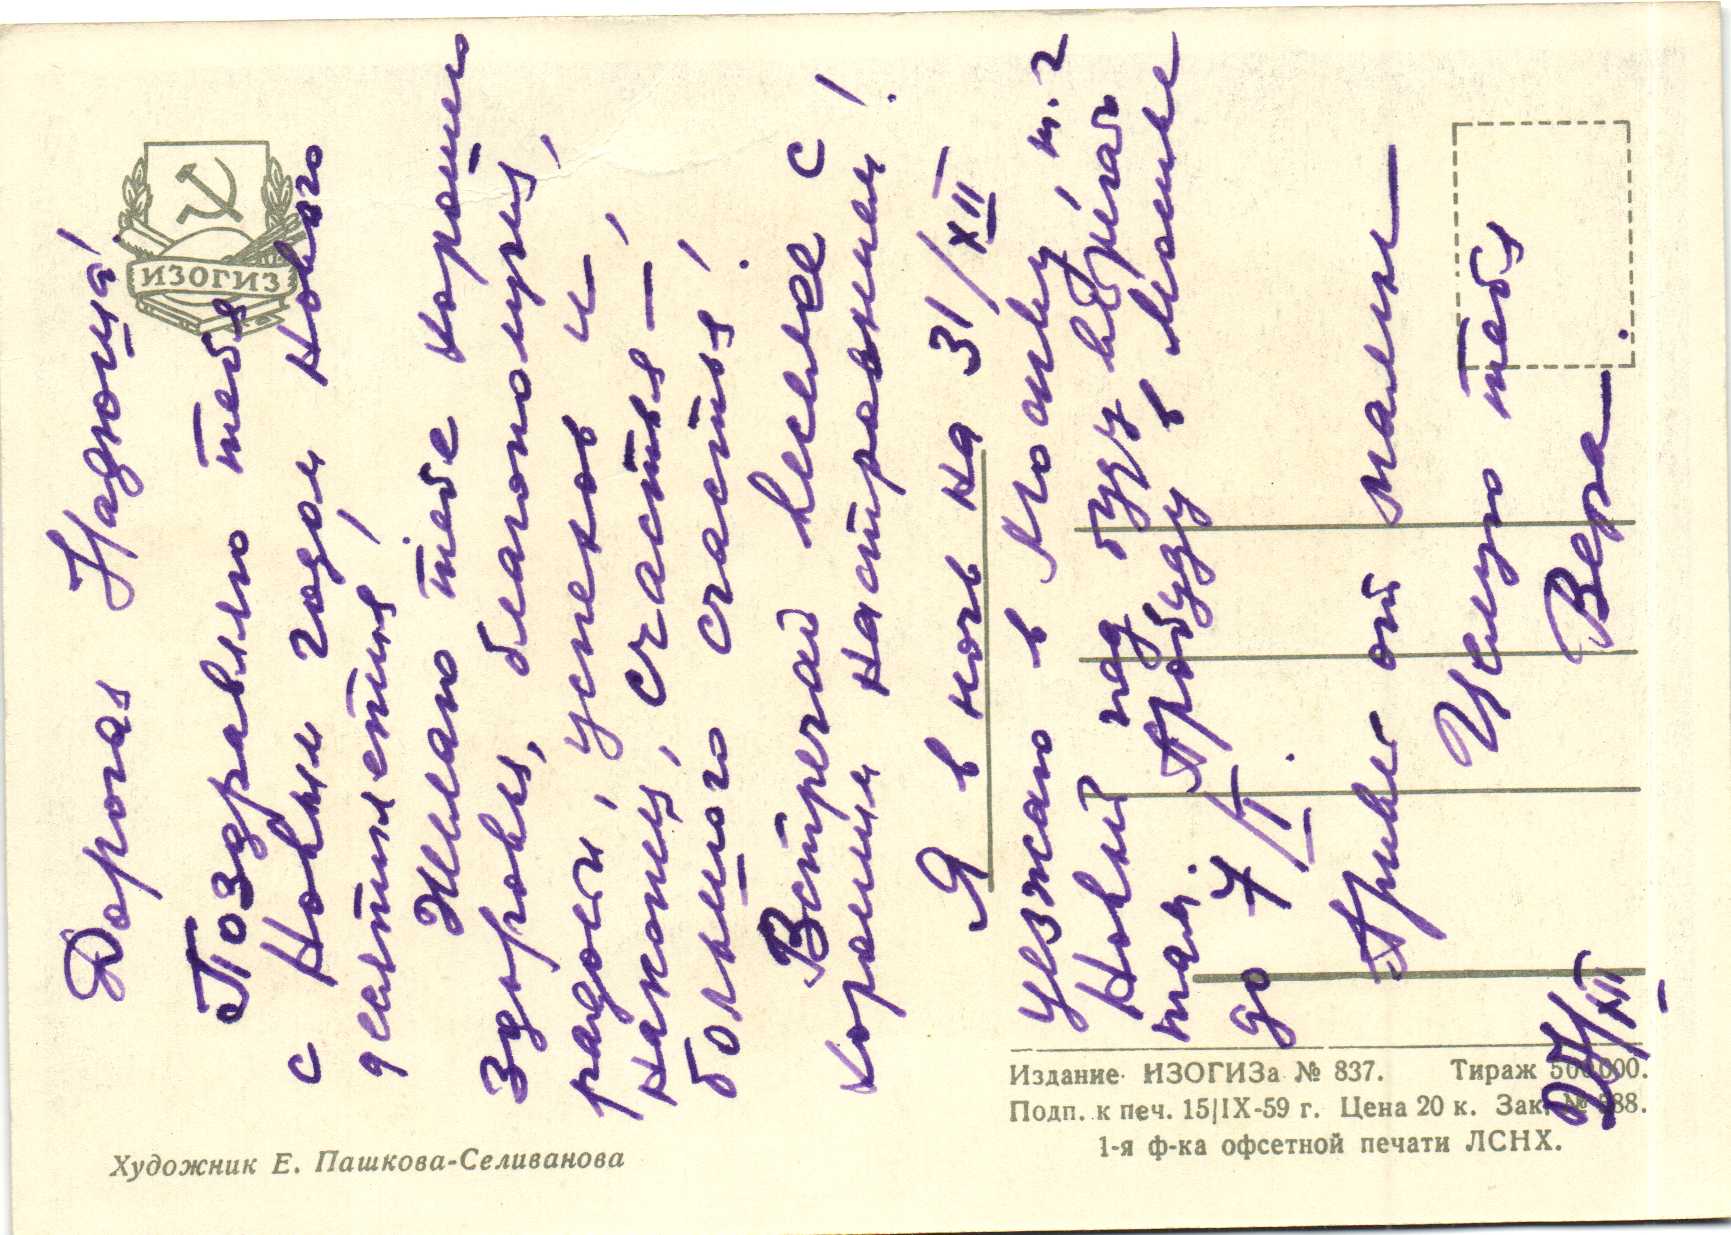 Дорогая Надюша!
Поздравляю тебя
с Новым годом нового
десятилетия!
Желаю тебе хорошего
здоровья, благополучия,
радости, успехов и —
наконец, счастья —
большого счастья!
Встречай веселее с
хорошим настроением!
Я в ночь на 31/XII
уезжаю в Москву, т.
Новый год буду встречать
там. Пробуду в Москве
до 7/I.
Привет от мамы —
Целую тебя
Вера.
/XII
ИЗОГИЗ
Издание ИЗОГИЗа № 837. Тираж 500000.
Подп. к печ. 15|IX-59 г. Цена 20 к. Зак. №
1-я ф-ка офсетной печати ЛСНХ.
Художник Е. Пашкова-Селиванова